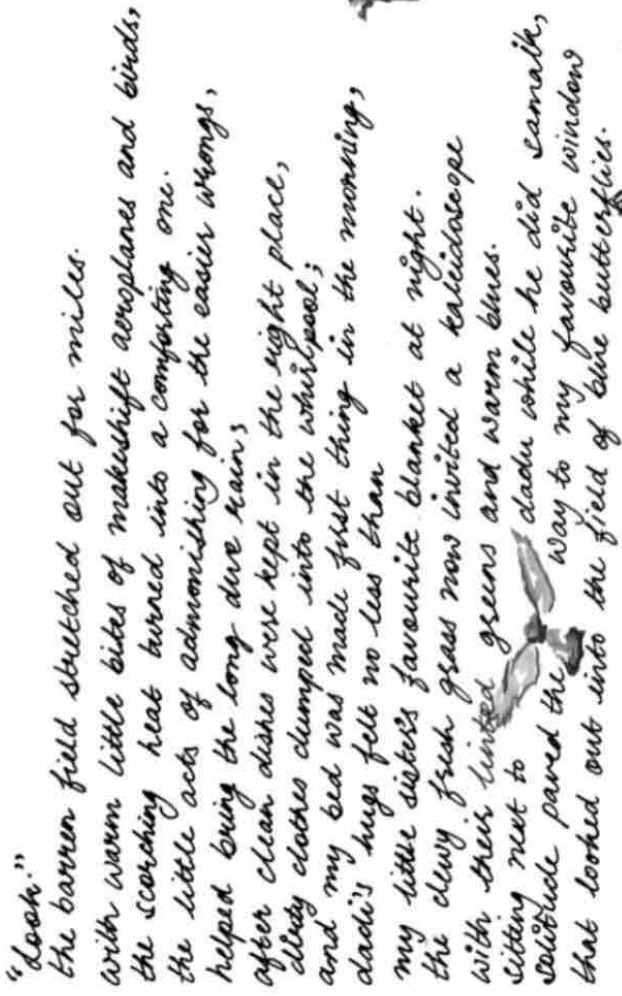 "Look."
the barren field stretched out for miles.
with warm little bites of makeshift aeroplanes and birds,
the scorching heat turned into a comforting one.
the little acts of admonishing for the easier wrongs,
helped bring the long due rain;
after clean dishes were kept in the right place,
dirty clothes dumped into the whirlpool;
and my bed was made first thing in the morning,
dadi's hugs felt no less than
my little sister's favourite blanket at night.
the dewy fresh grass now invited a kaleidoscope
with their tinted greens and warm blues.
sitting next to dadu while he did samaik,
solitude paved the way to my favourite window
that looked out into the field of blue butterflies.